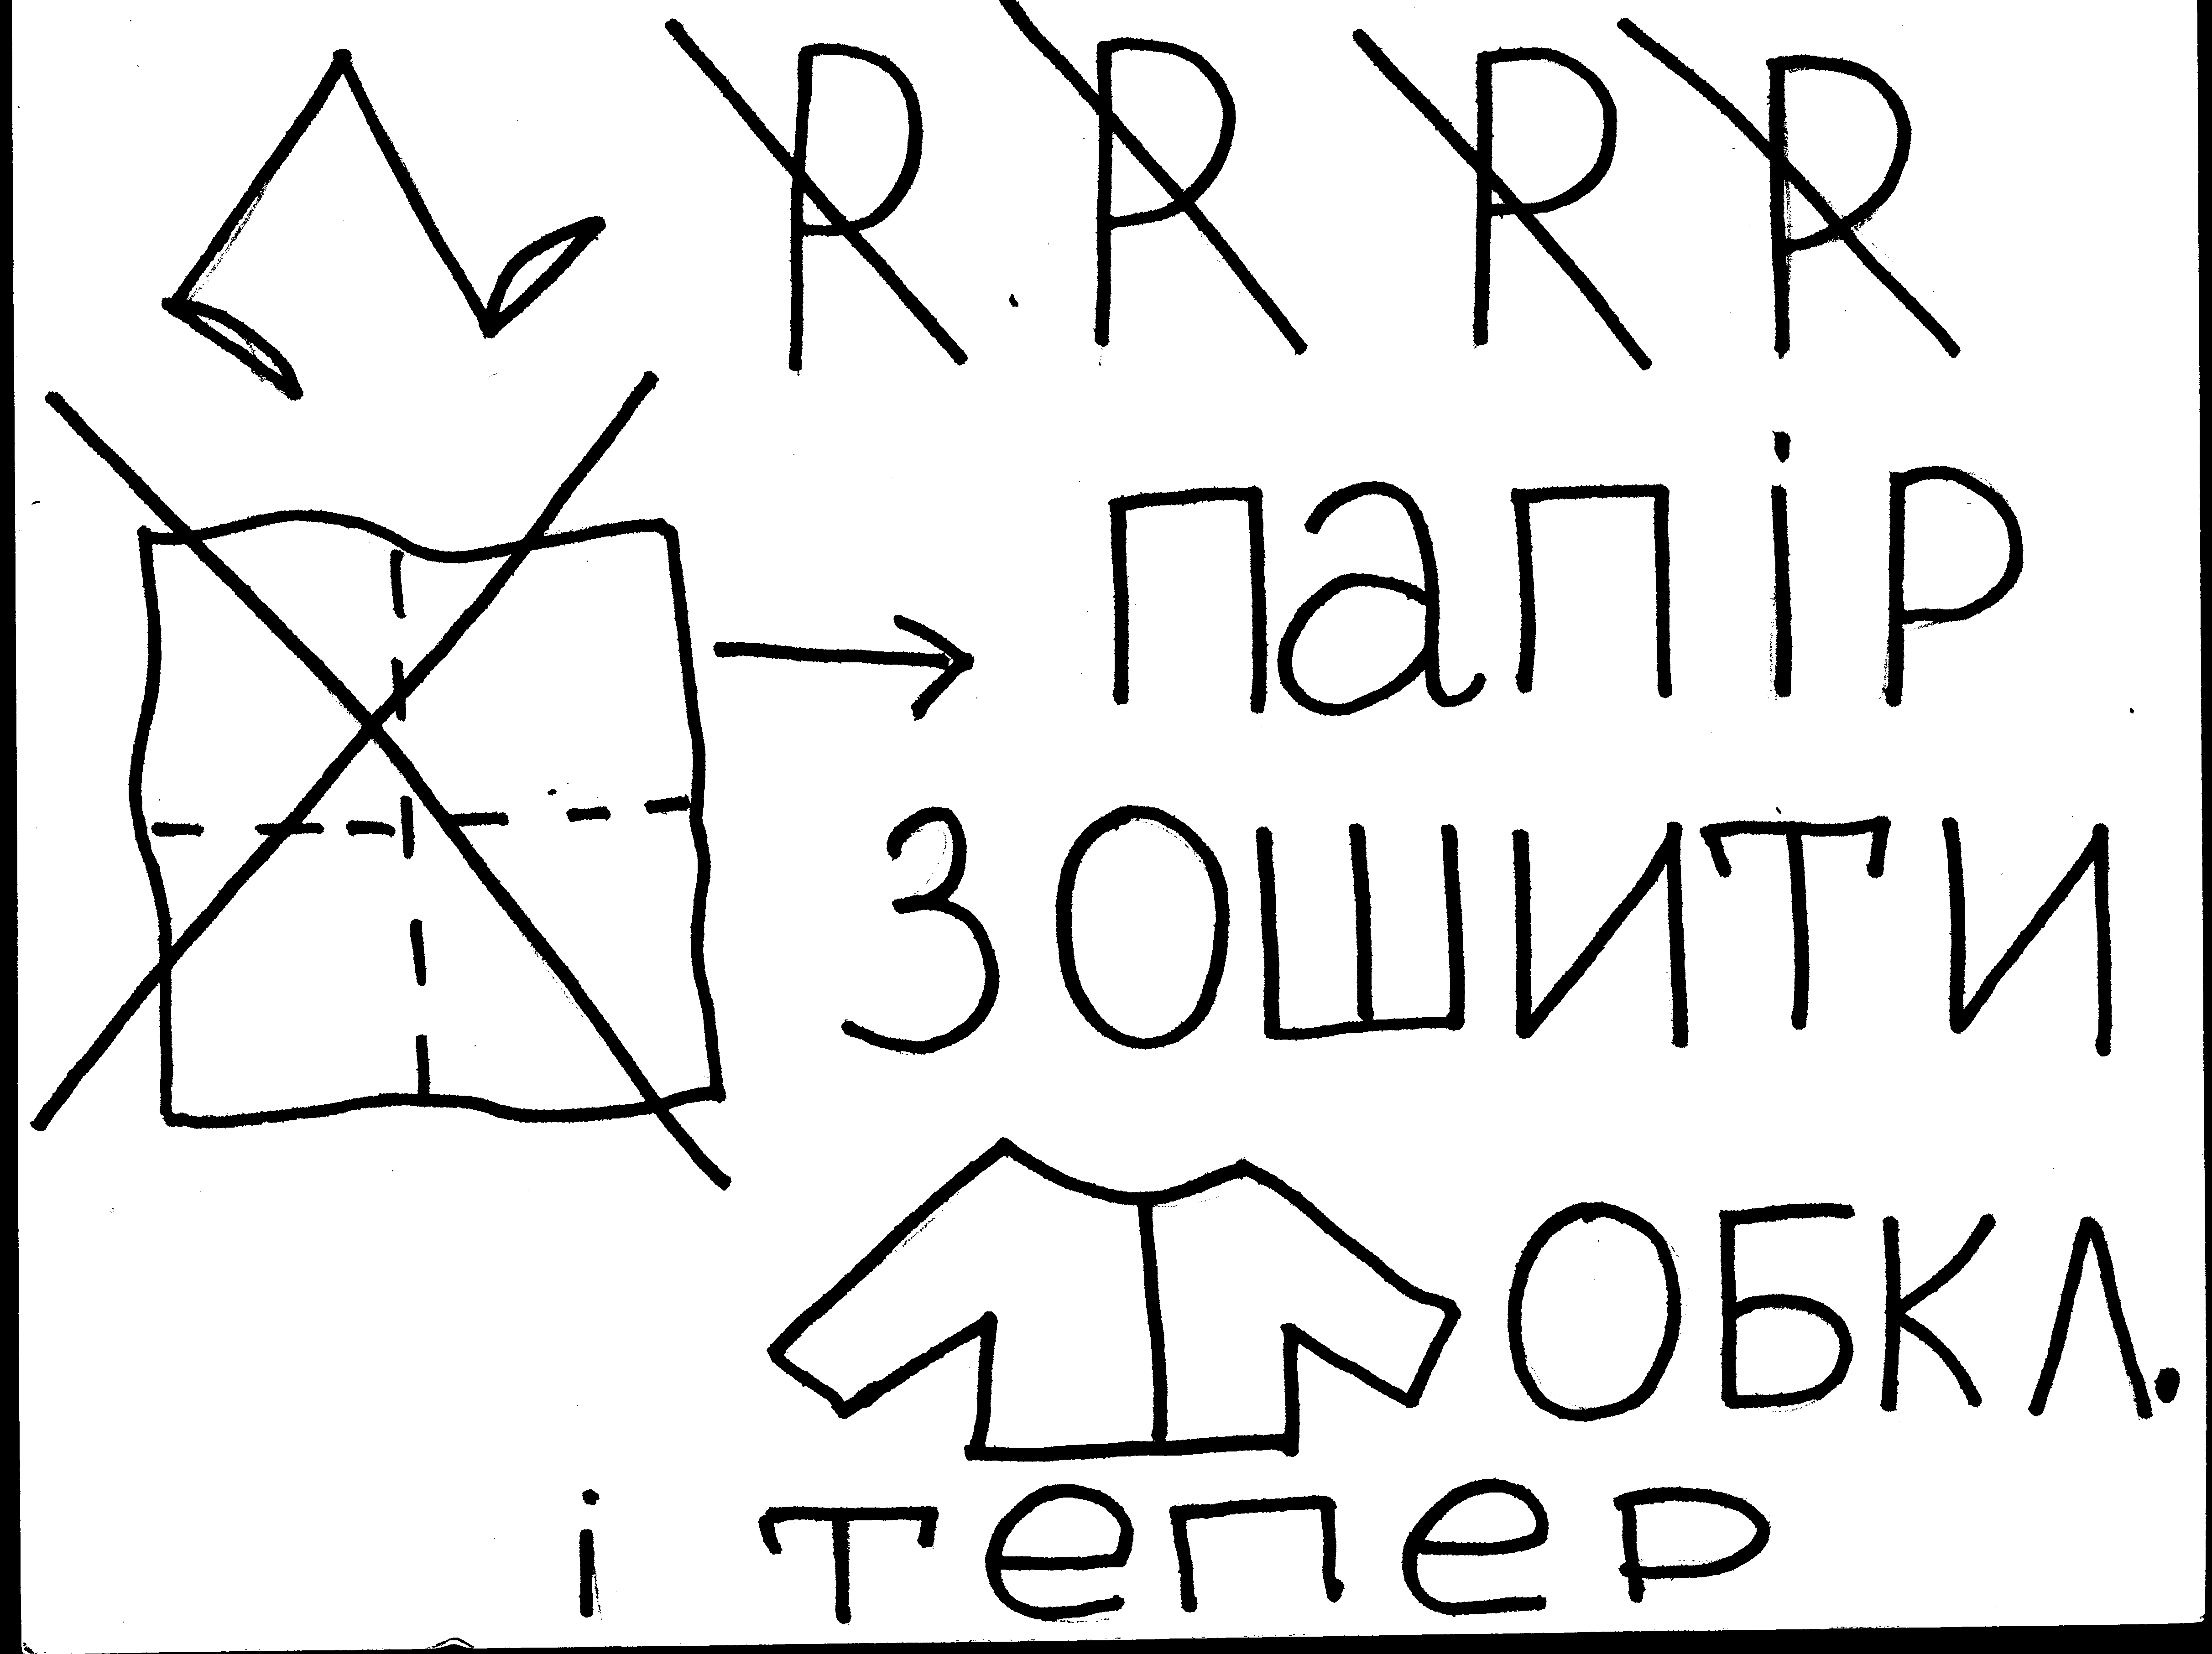 Р Р Р Р
папір
зошити
обкл.
і тепер